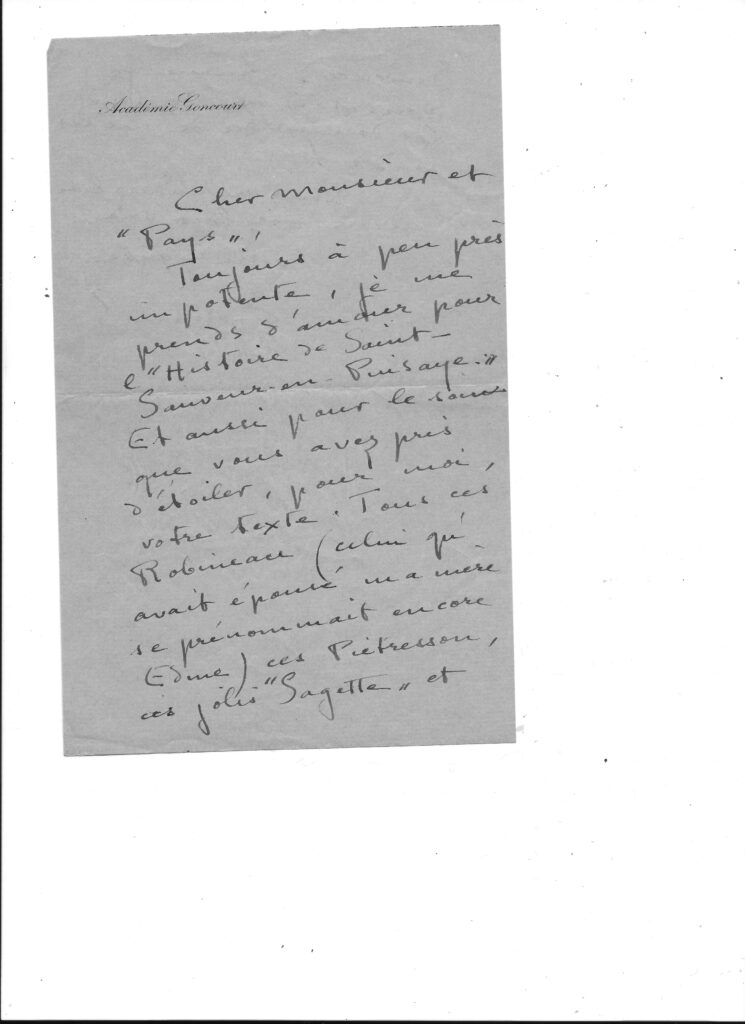 Académie Goncourt
Cher Monsieur et
"Pays",
Toujours à peu près
impotente, je me
prends d'amour pour
l'"Histoire de Saint-
Sauveur-en-Puisaye."
Et aussi pour le soin
que vous avez pris
d'étoiler, pour moi,
votre texte. Tous ces
Robineau (celui qu'
avait épousé ma mère
se prénommait encore
Edme) ces Piètresson,
ces jolis "Sagette" et